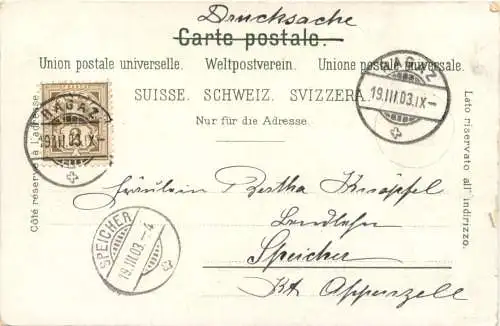 Drucksache
Carte postale.
Union postale universelle. Weltpostverein. Unione postale universale.
SUISSE. SCHWEIZ. SVIZZERA.
Nur für die Adresse.
Côté réservé à l'adresse.
Lato riservato all' indirizzo.
RAGAZ
19.III.03.IX-
RAGAZ
19.III.03.IX-
2
SPEICHER
19.III.03.-4
Fräulein Bertha Knöpfel
Speicher
Kt. Appenzell